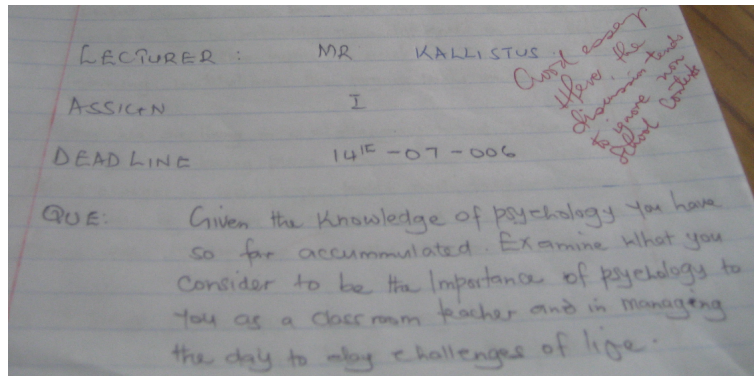 LECTURER : MR KALLISTUS.
Good essay
Here, the
discussion tends
to ignore non
School contexts
ASSIGN I
DEADLINE 14TH-07-006
QUE: Given the Knowledge of psychology you have
so far accummulated. Examine what you
Consider to be the Importance of psychology to
you as a classroom teacher and in managing
the day to day challenges of life.